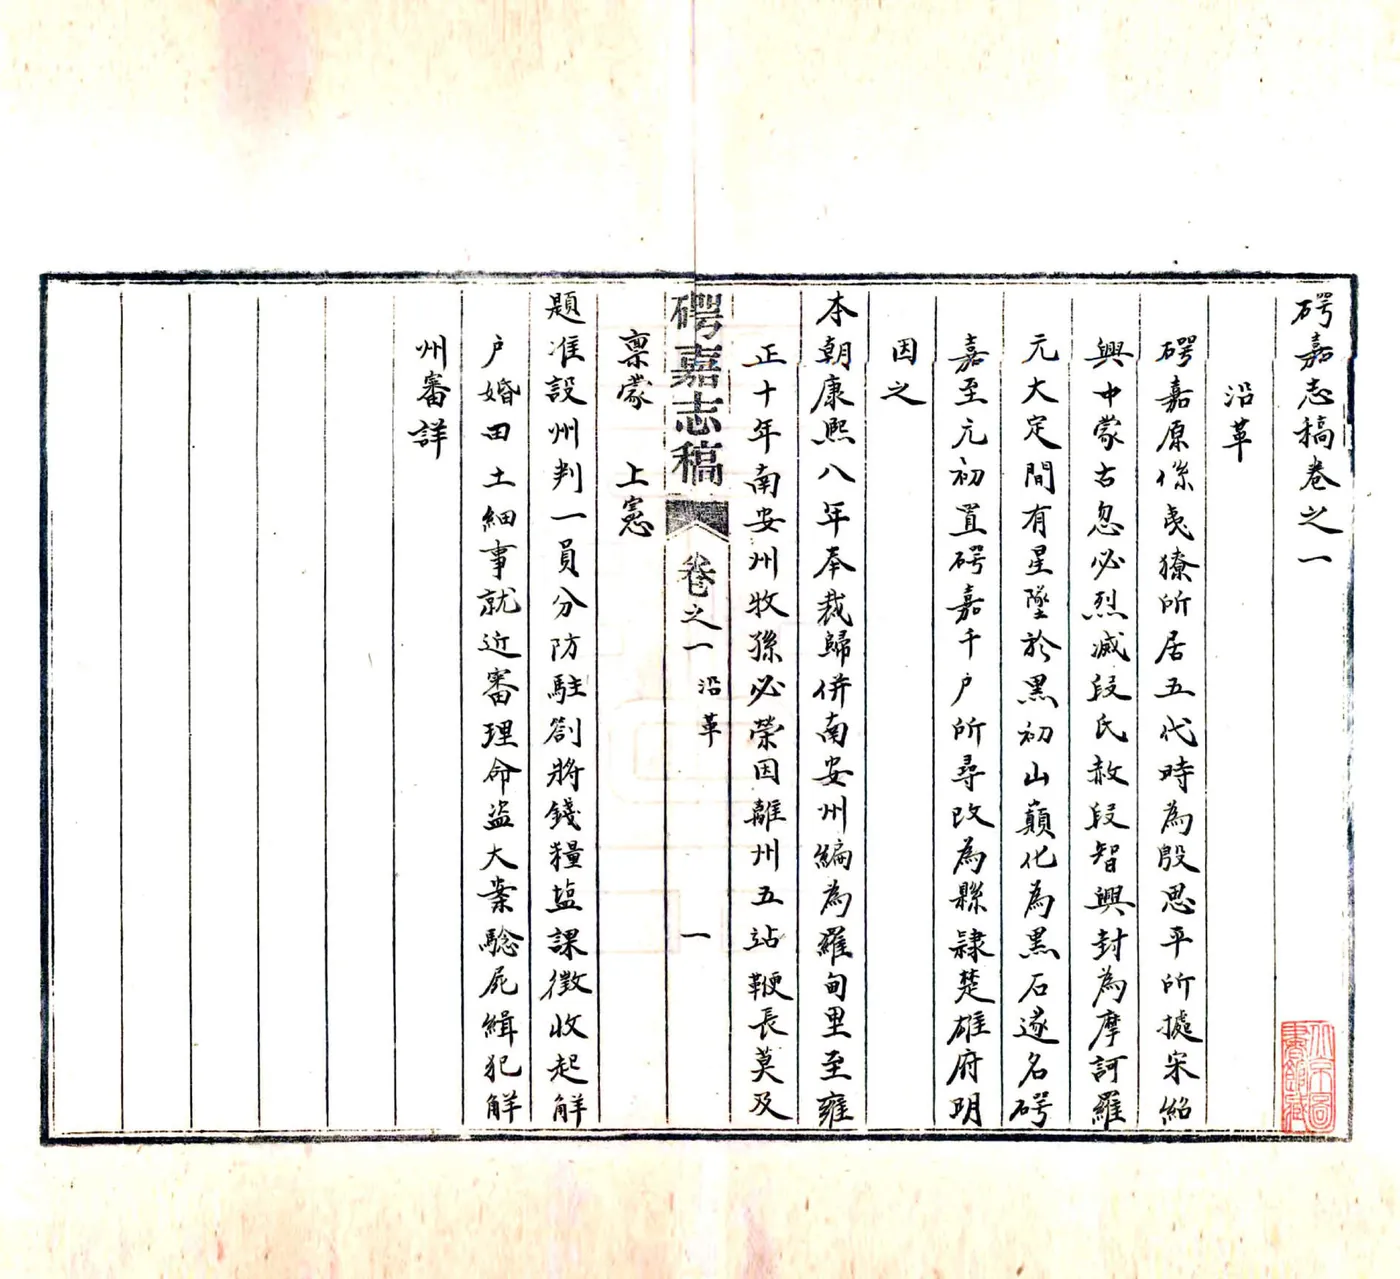 碍嘉志稿卷之一
沿革
碍嘉原係夷獠所居五代時為殷思平所據宋紹
興中蒙古忽必烈滅段氏赦段智興封為摩訶羅
元大定間有星墜於黑初山巔化為黑石遂名碍
嘉至元初置碍嘉千户所尋改為縣隷楚雄府明
因之
本朝康熙八年奉裁歸併南安州編為羅甸里至雍
正十年南安州牧孫必榮因離州五站鞭長莫及
碍嘉志稿 卷之一 沿革 一
稟蒙 上憲
題准設州判一員分防駐劄將錢糧塩課徵收起解
户婚田土細事就近審理命盜大案騐屍緝犯解
州審詳
北京圖書館藏